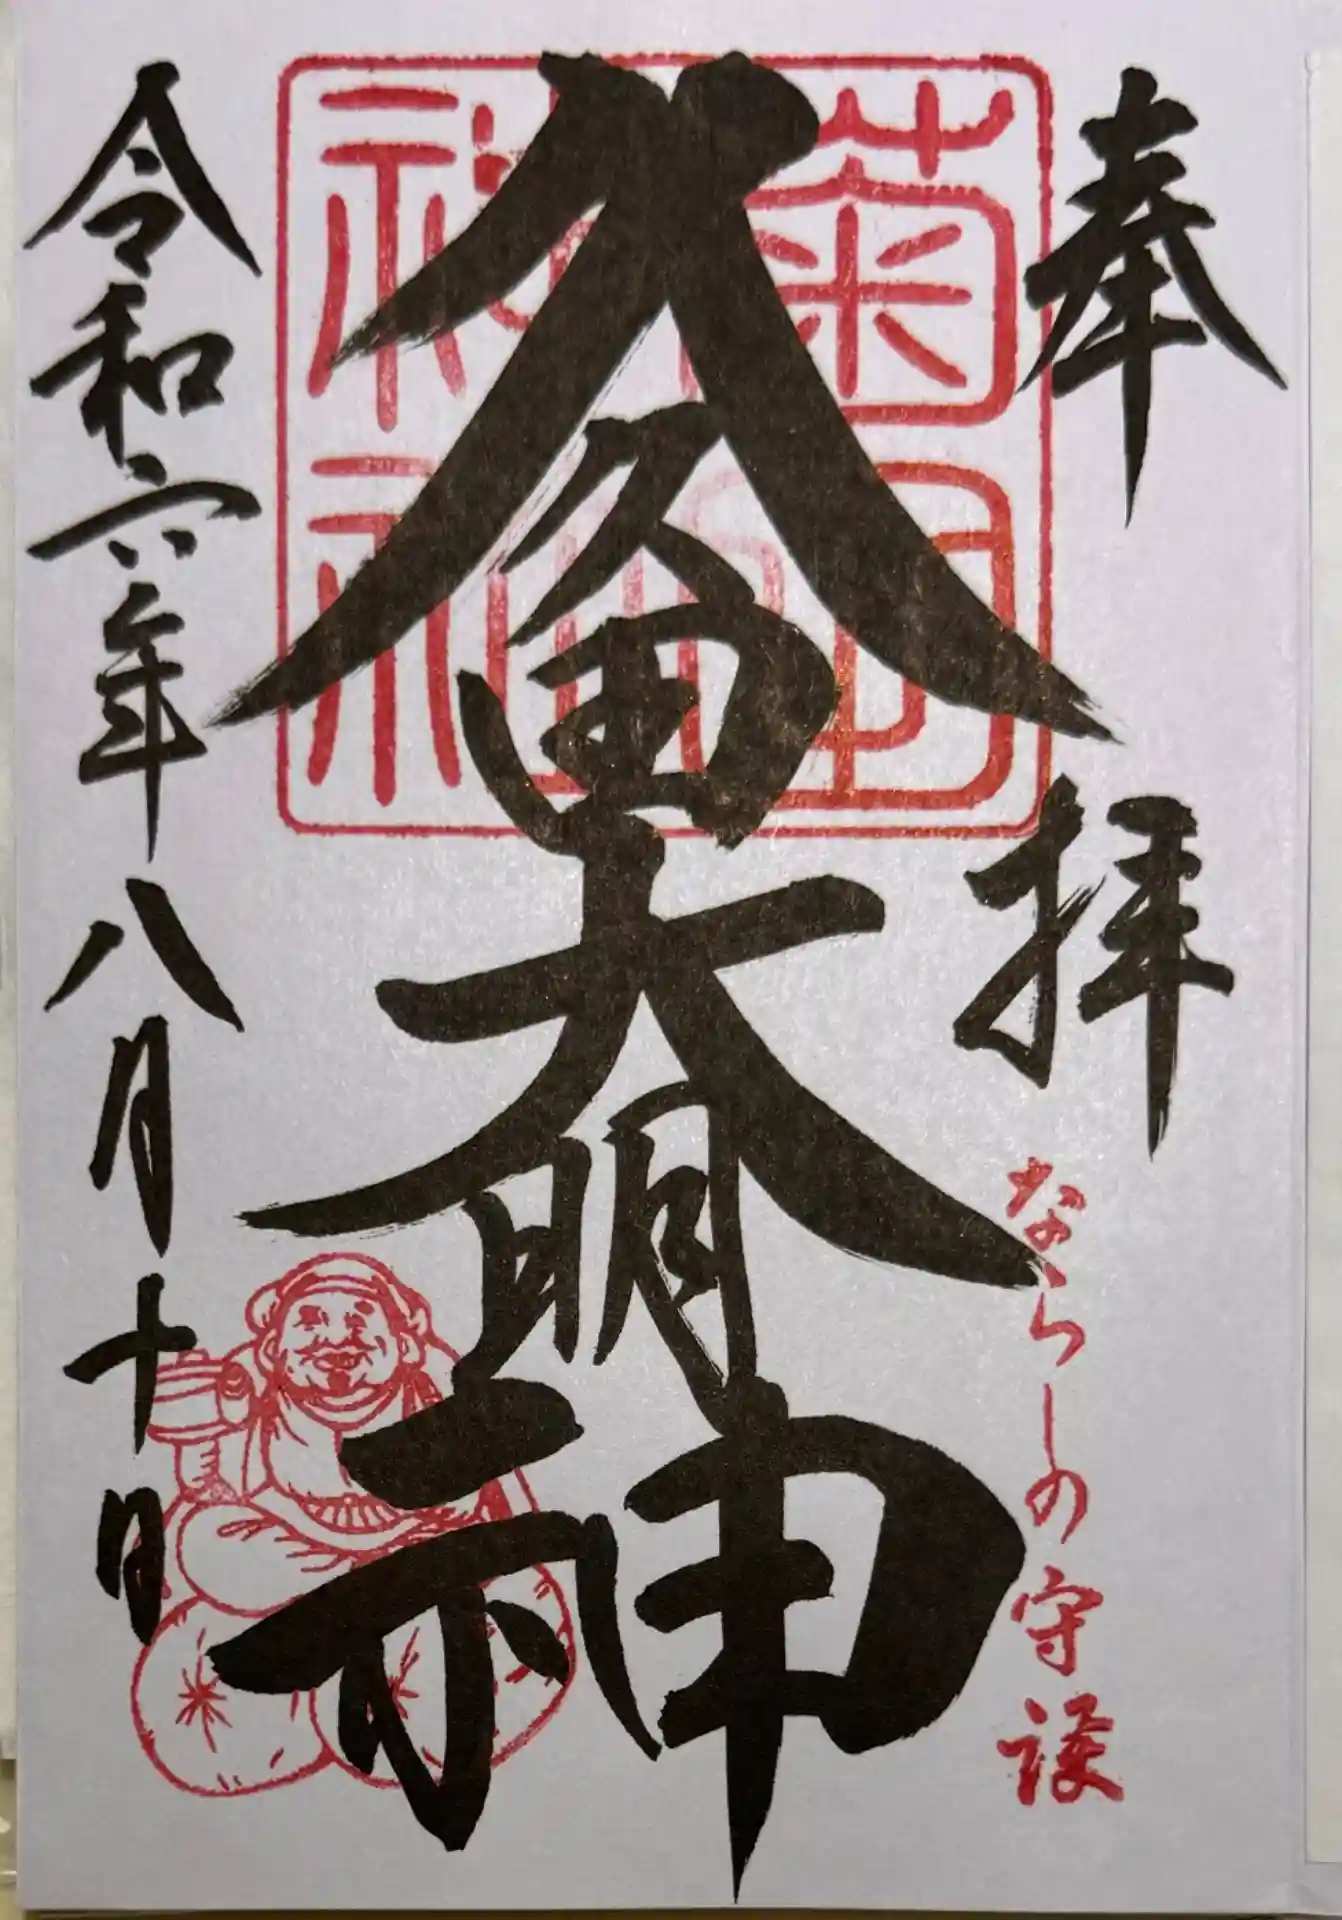 奉拝
ならしの守護
久久田大明神
菊田
神社
令和六年八月十日